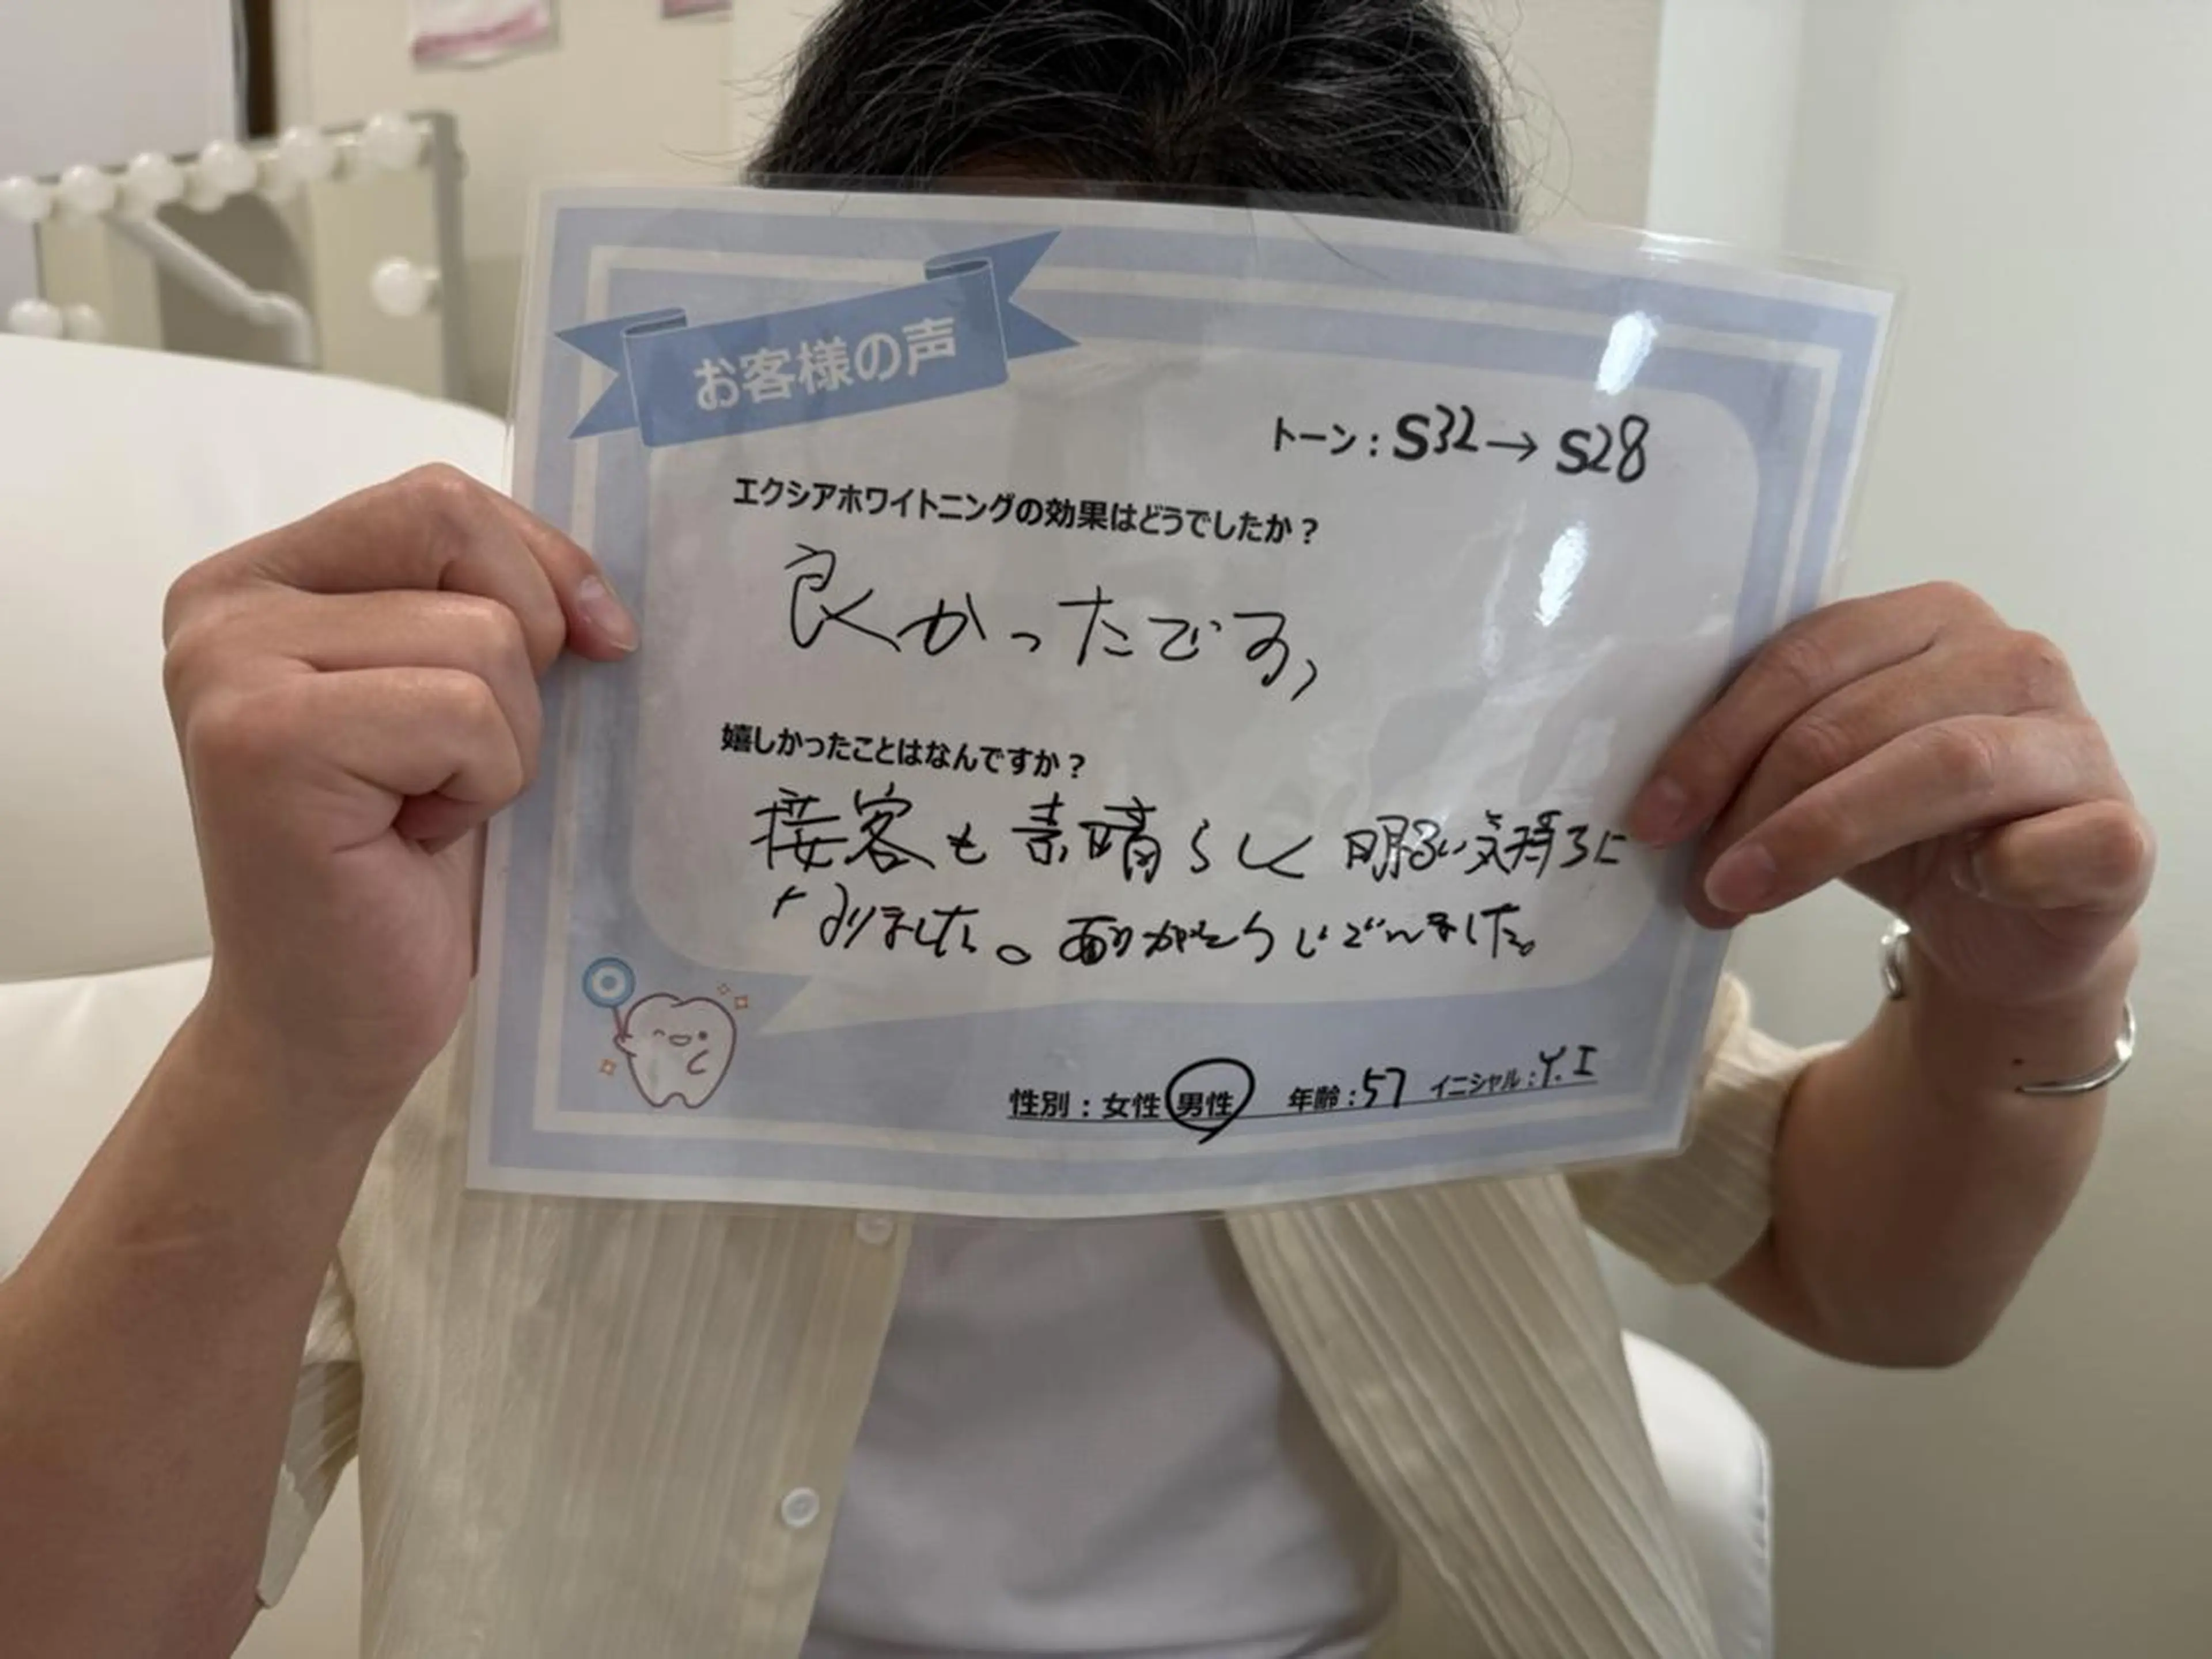 お客様の声
トーン：S32→S28
エクシアホワイトニングの効果はどうでしたか？
良かったです，
嬉しかったことはなんですか？
接客も素晴らしく 明るい気持ちに
なりました。ありがとうございました。
性別：女性 男性 年齢：57 イニシャル：Y.I